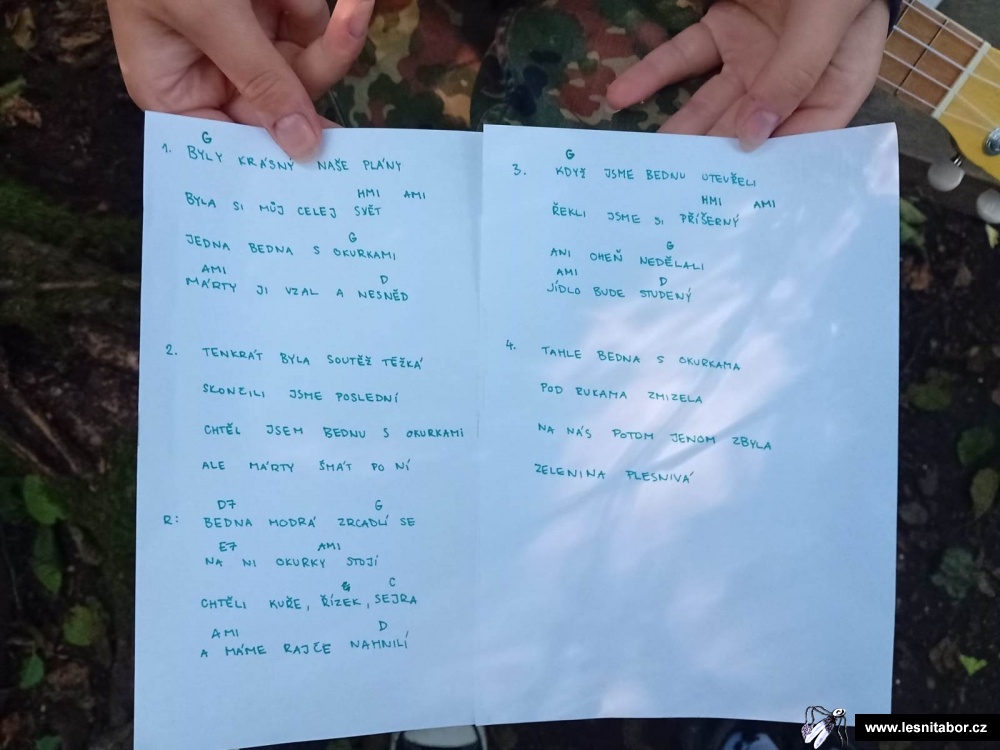 G
1. BYLY KRÁSNÝ NAŠE PLÁNY
HMI AMI
BYLA SI MŮJ CELEJ SVĚT
G
JEDNA BEDNA S OKURKAMI
AMI D
MÁRTY JI VZAL A NESNĚD
2. TENKRÁT BYLA SOUTĚŽ TĚŽKÁ
SKONČILI JSME POSLEDNÍ
CHTĚL JSEM BEDNU S OKURKAMI
ALE MÁRTY ŠMÁT PO NÍ
D7 G
R: BEDNA MODRÁ ZRCADLÍ SE
E7 AMI
NA NI OKURKY STOJÍ
G C
CHTĚLI KUŘE, ŘÍZEK, SEJRA
AMI D
A MÁME RAJČE NAHNILÍ
G
3. KDYŽ JSME BEDNU OTEVŘELI
HMI AMI
ŘEKLI JSME SI PŘÍŠERNÝ
G
ANI OHEŇ NEDĚLALI
AMI D
JÍDLO BUDE STUDENÝ
4. TAHLE BEDNA S OKURKAMA
POD RUKAMA ZMIZELA
NA NÁS POTOM JENOM ZBYLA
ZELENINA PLESNIVÁ
www.lesnitabor.cz